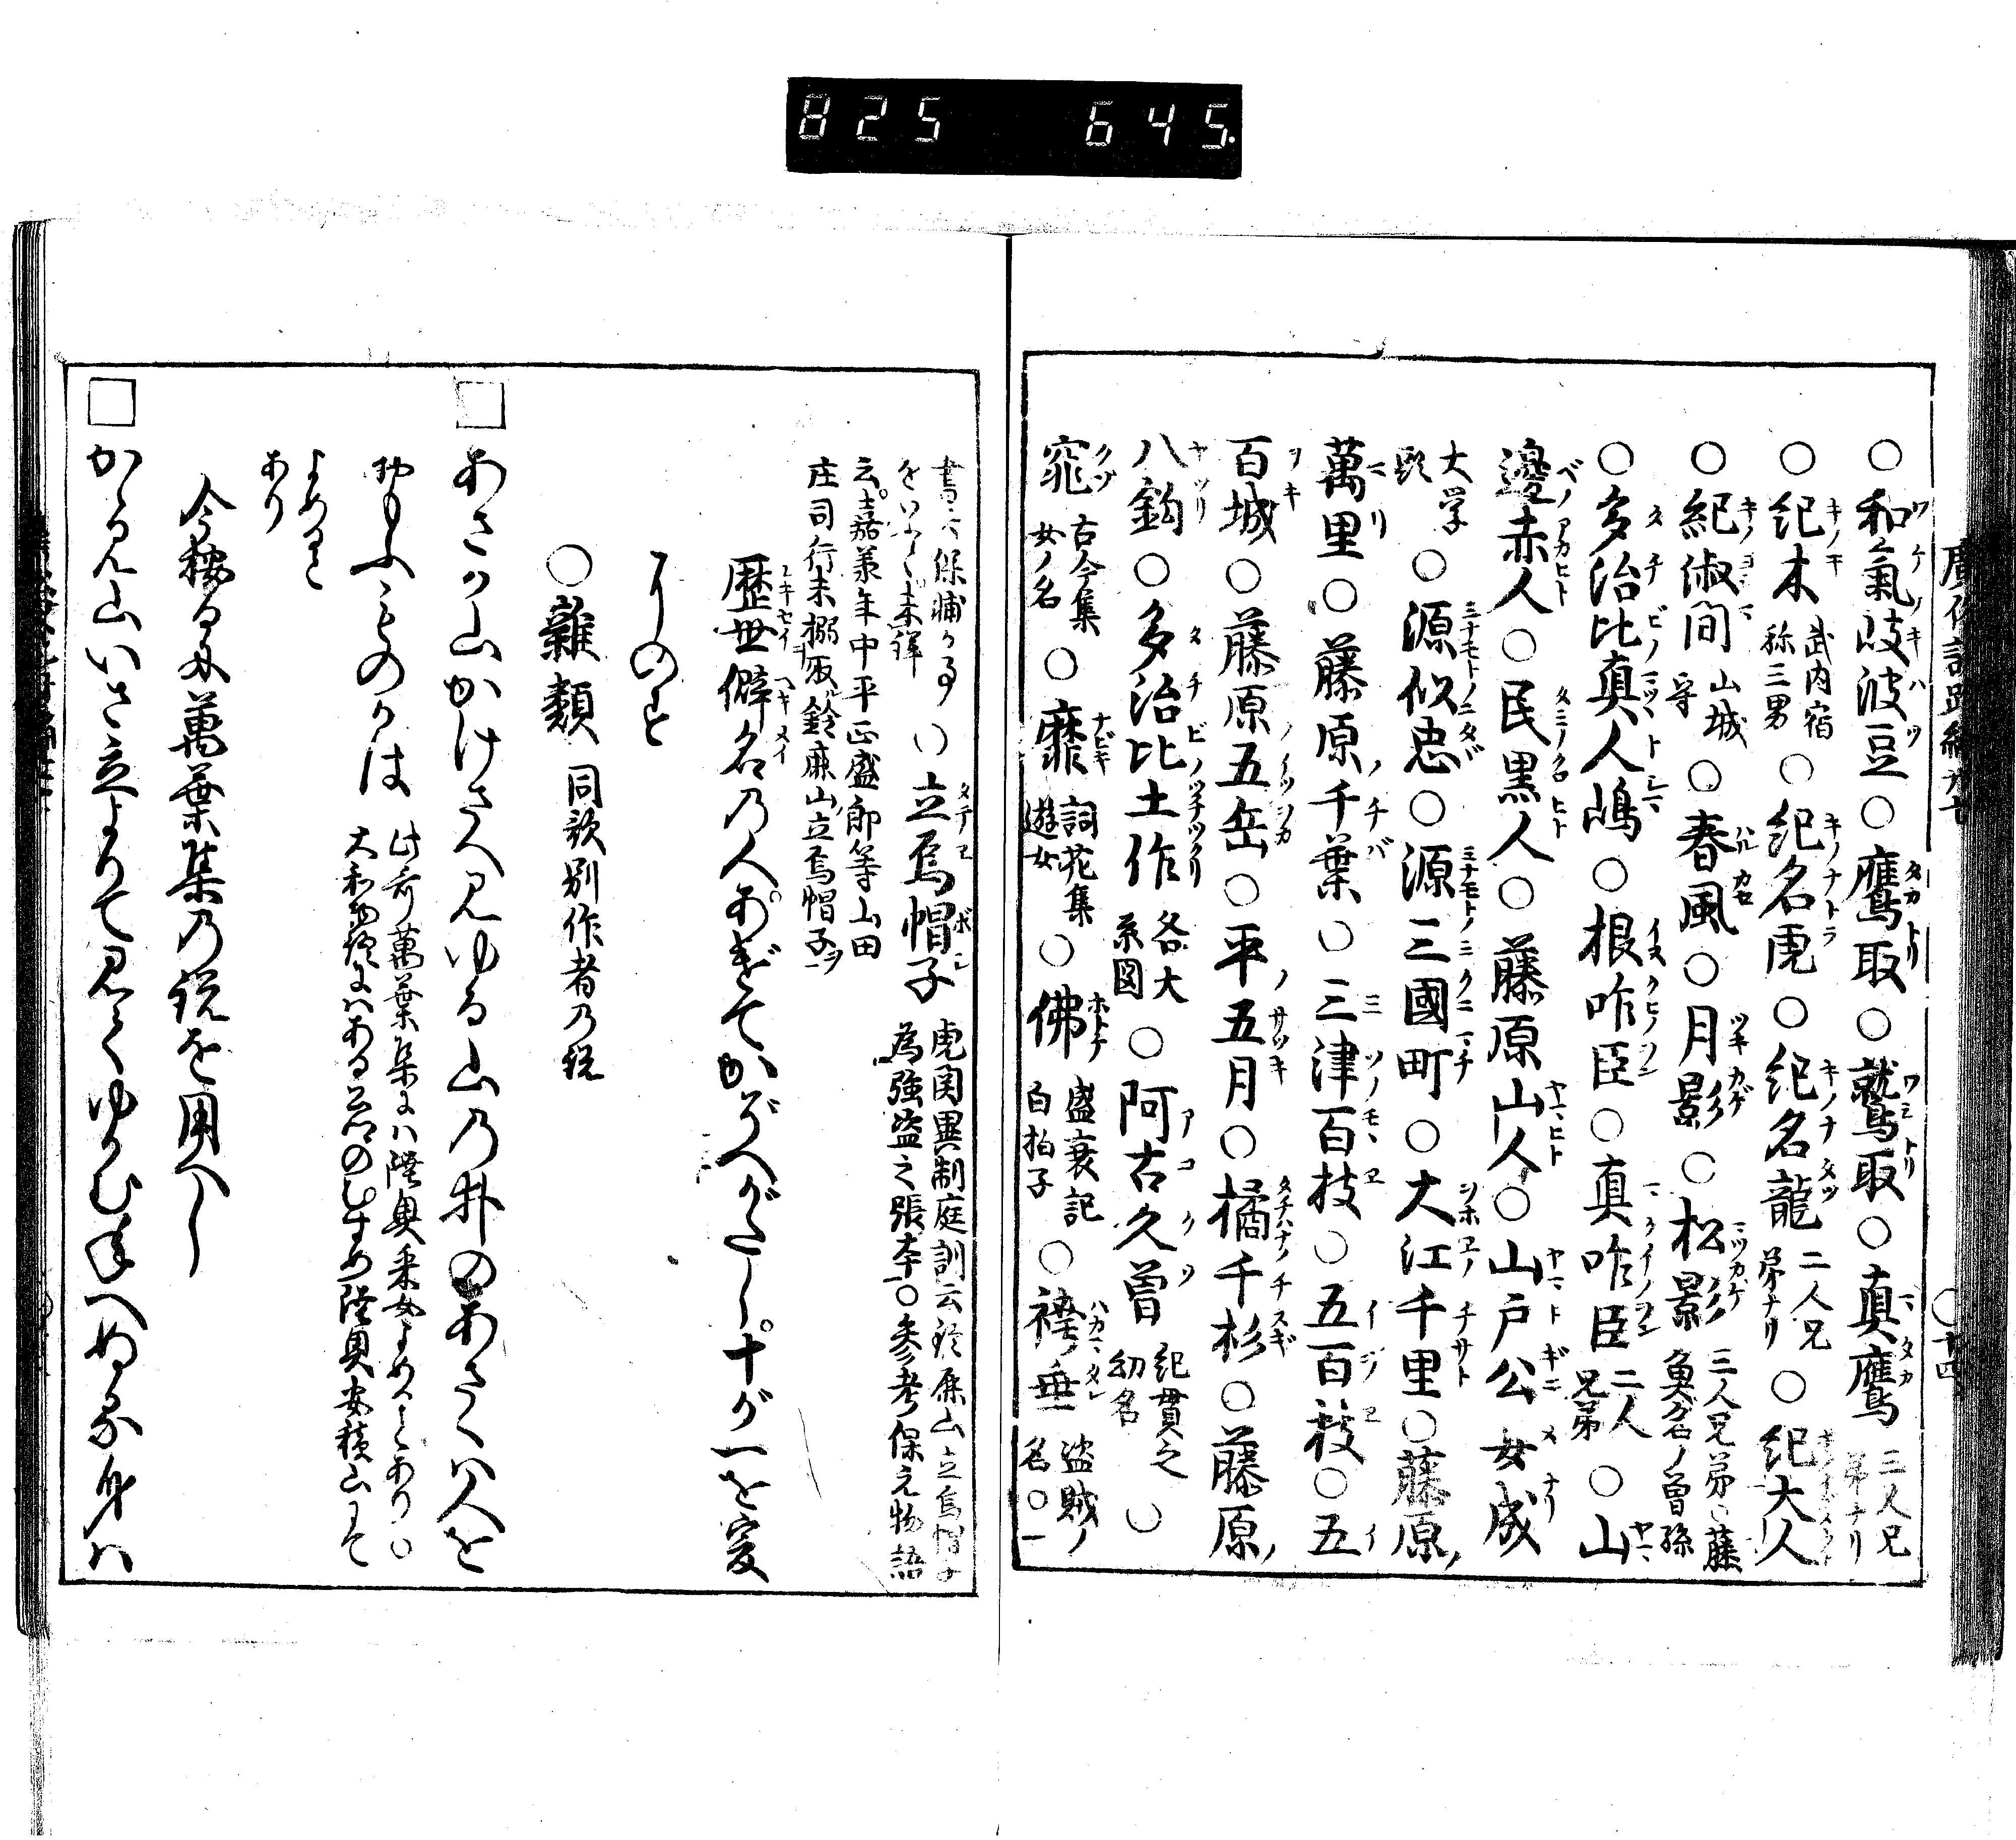 825 645.
○和氣岐波豆○鷹取○鷲取○真鷹 三人兄弟ナリ
○紀木 武内宿称三男 ○紀名虎○紀名龍 二人兄弟ナリ ○紀大人
○紀淑間 山城守 ○春風○月影○松影 三人兄弟藤魚名ノ曽孫
○多治比真人嶋○根咋臣○真咋臣 二人兄弟 ○山
邊赤人○民黒人○藤原山人○山戸公女成
大学頭 ○源似忠○源三國町○大江千里○藤原ノ
萬里○藤原千葉○三津百枝○五百枝○五
百城○藤原五岳○平五月○橘千杉○藤原ノ
八鈎○多治比土作 各大系図 ○阿古久曽 紀貫之幼名 ○
窕 古今集女ノ名 ○靡 詞花集遊女 ○佛 盛衰記白拍子 ○袴垂 盗賊ノ名○一
○立烏帽子 虎関異制庭訓云鈴鹿山立烏帽子為強盗之張本○参考保元物語
云嘉承年中平正盛郎等山田庄司行末搦取鈴鹿山立烏帽子ヲ
歴世僻名の人あげてかぞへがたし十が一を爰
にのす
○雜類 同歌別作者の説
□あさか山かけさへ見ゆる山の井のあさくは人を
おもふものかは 此哥萬葉集には陸奥采女よめるとあり○大和物語にはある人のむすめ陸奥安積山にて
よめると
あり
今按るに萬葉集の説を用へし
□かゝみ山いさ立よりて見てゆかむ年へぬる身は